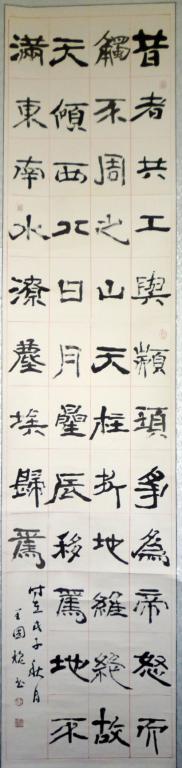 昔者共工與顓頊爭為帝怒而
觸不周之山天柱折地維絕故
天傾西北日月星辰移焉地不
滿東南水潦塵埃歸焉
时在戊子秋月
王國書